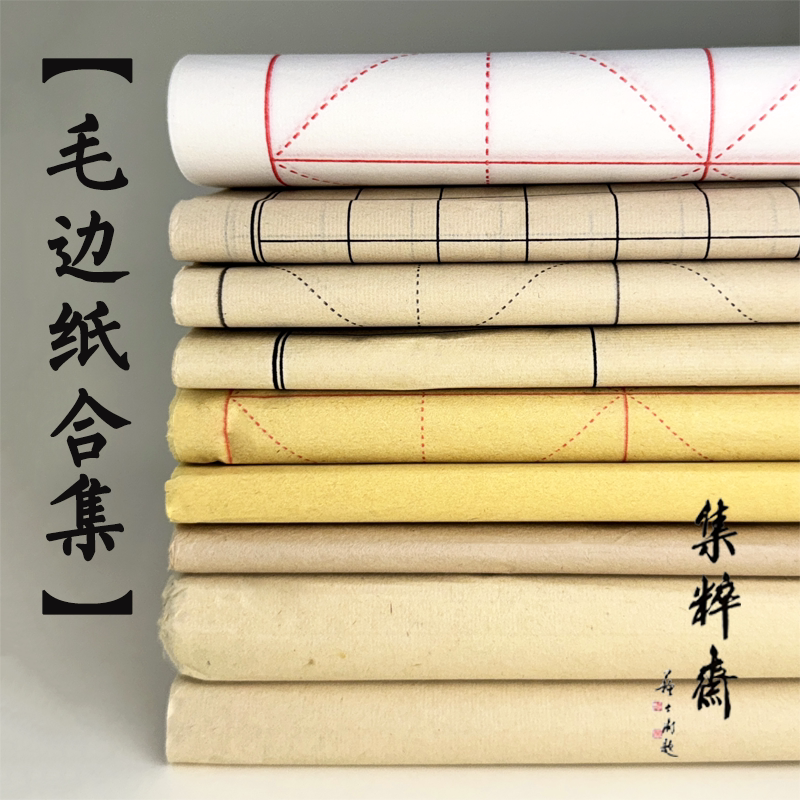 【毛边纸合集】
集粹斋